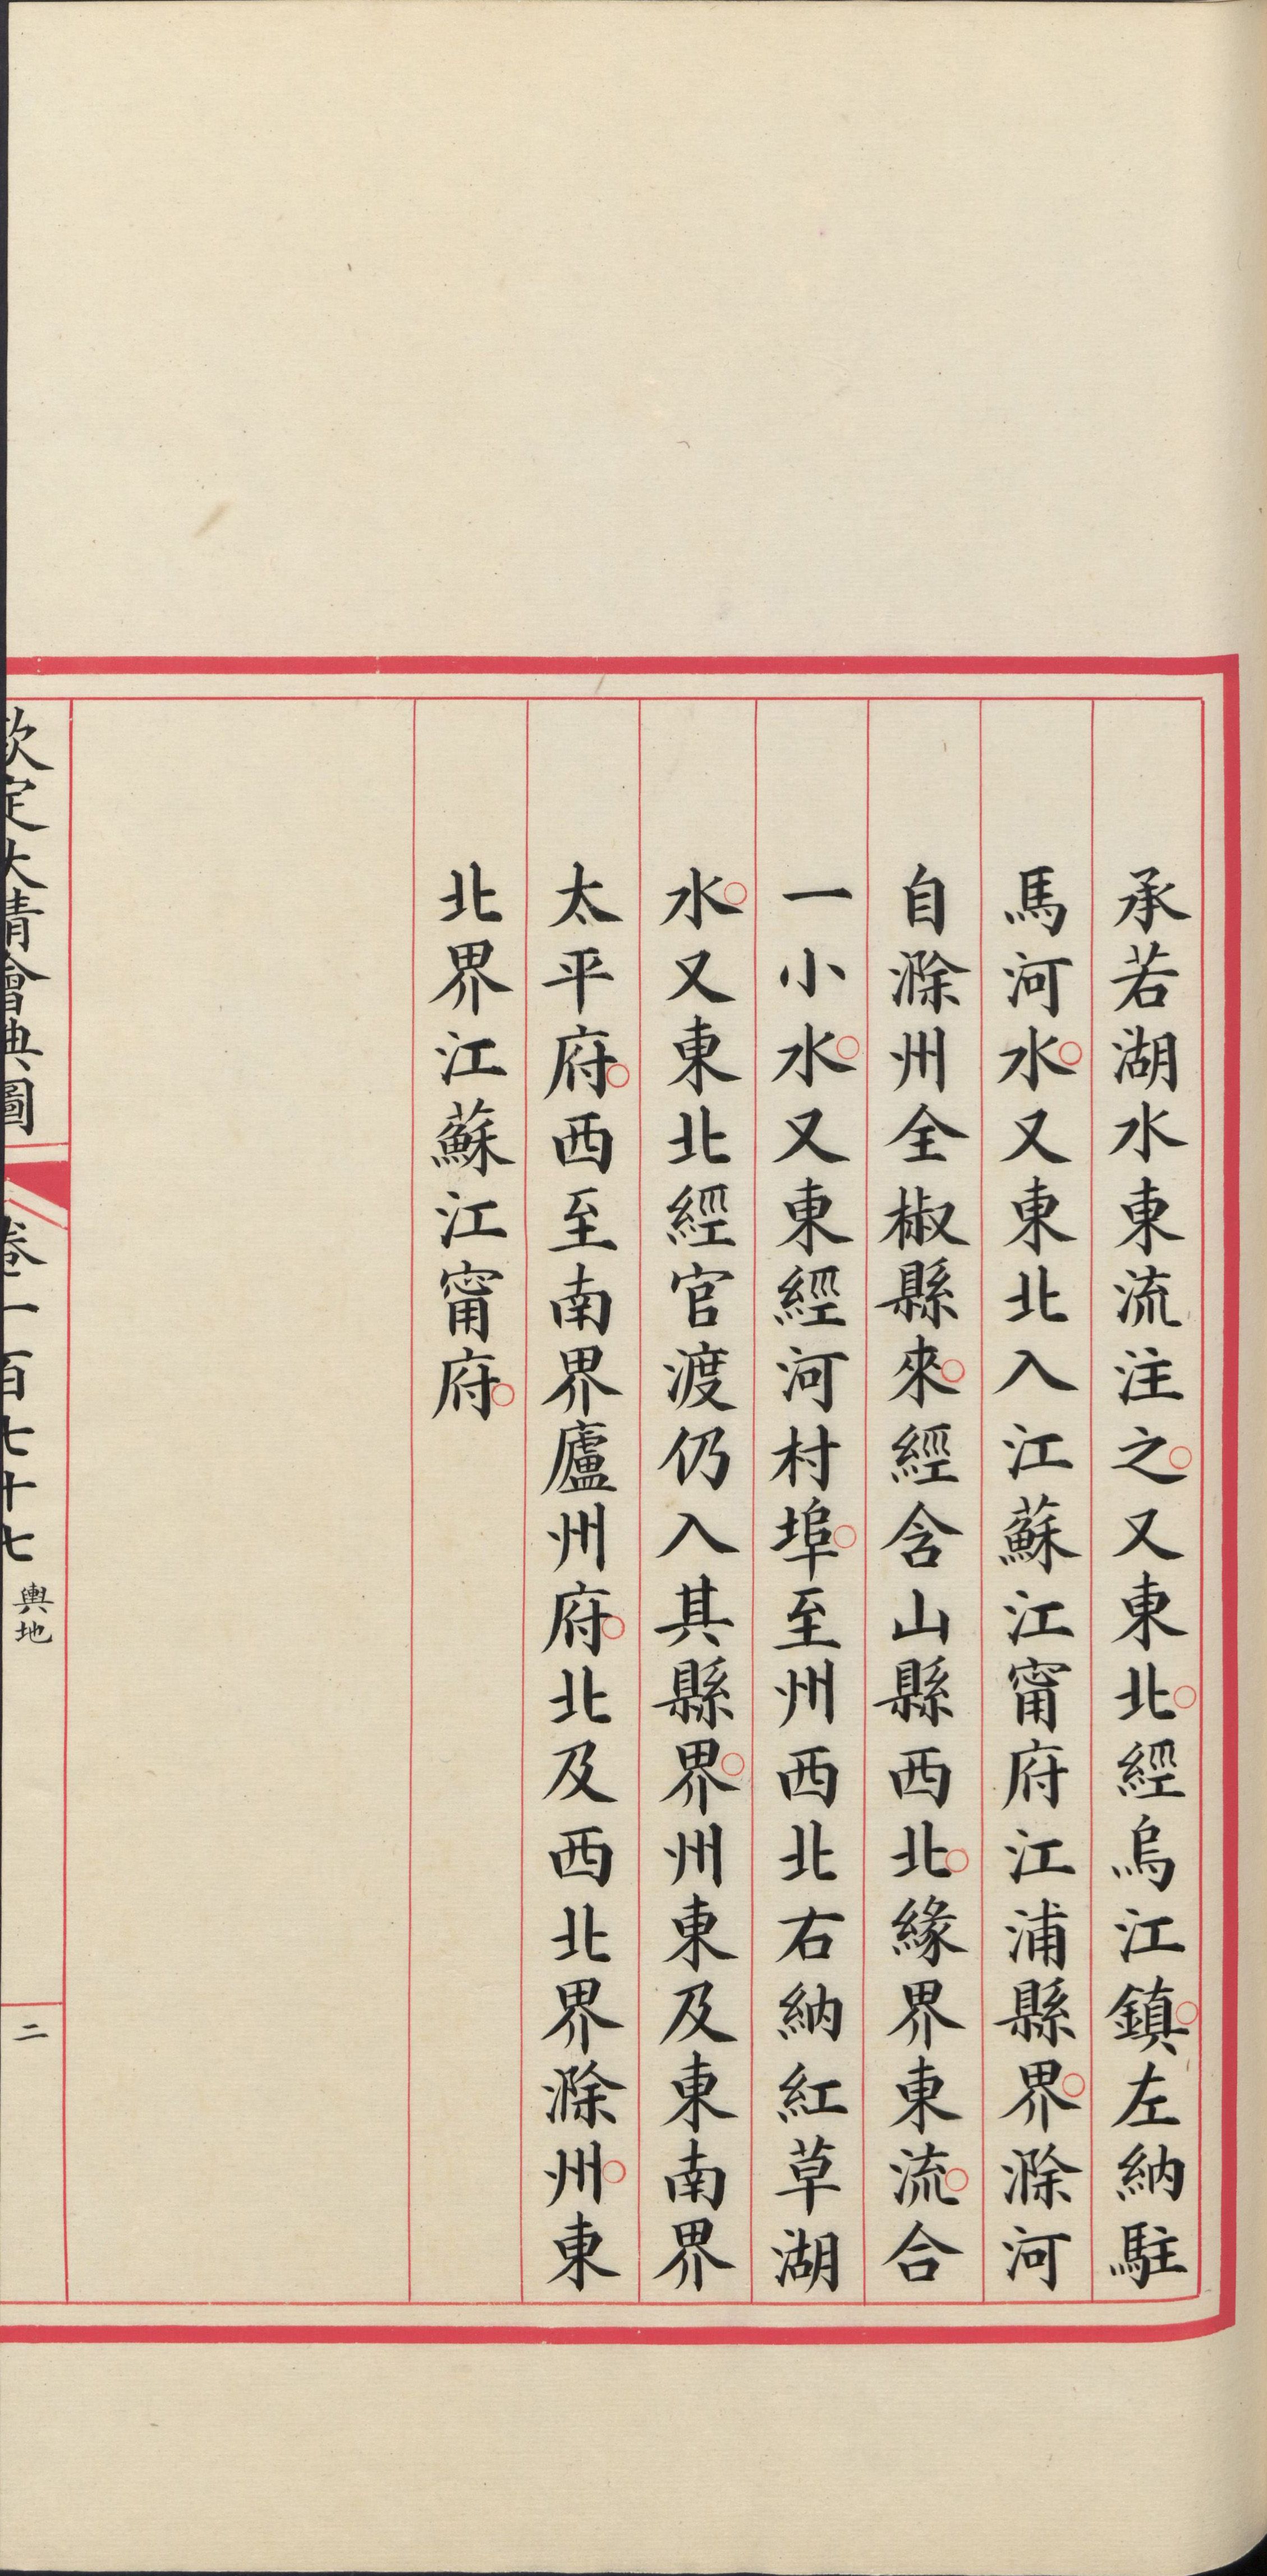 承若湖水東流注之○又東北○經烏江鎮○左納駐
馬河水○又東北入江蘇江甯府江浦縣界○滁河
自滁州全椒縣來○經含山縣西北○緣界東流○合
一小水○又東經河村埠○至州西北右納紅草湖
水○又東北經官渡仍入其縣界○州東及東南界
太平府○西至南界廬州府○北及西北界滁州○東
北界江蘇江甯府○
欽定大清會典圖
卷一百七十七
輿地
二